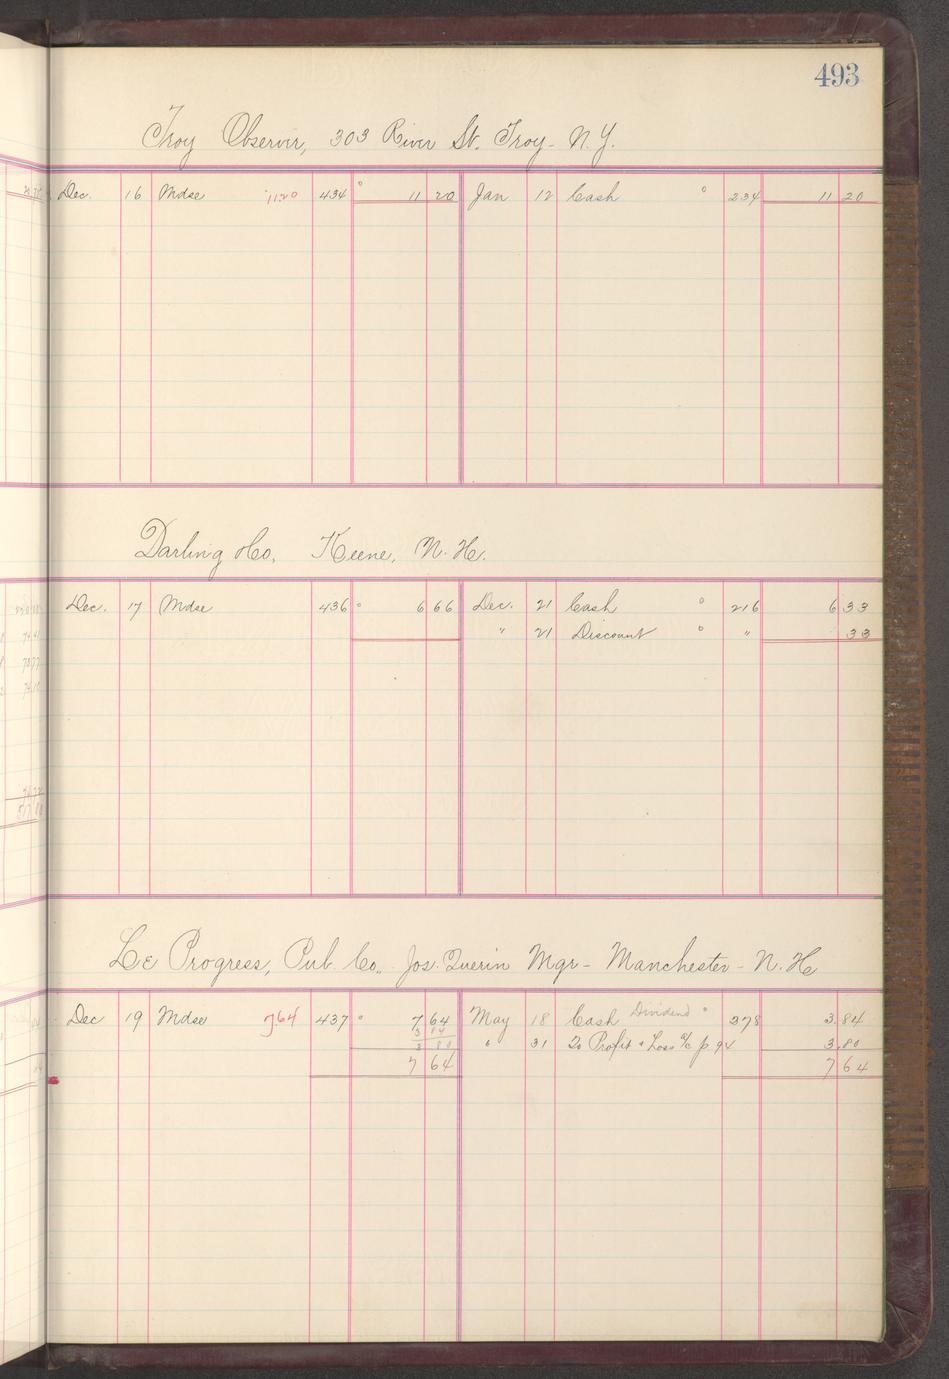 493
Troy Observir, 303 River St. Troy - N.Y.
Dec. 16 Mdse 11.20 434 11 20 Jan 12 Cash 234 11 20
Darling Co, Keene, N. H.
Dec. 17 Mdse 436 6 66 Dec. 21 Cash 216 6 33
" 21 Discount " 33
Le Progress, Pub. Co., Jos. Querin Mgr - Manchester - N. H
Dec 19 Mdse 7.64 437 7 64 May 18 Cash Dividend 378 3.84
3 84
3 80 " 31 To Profit & Loss a/c p. 94 3.80
7 64 7 64